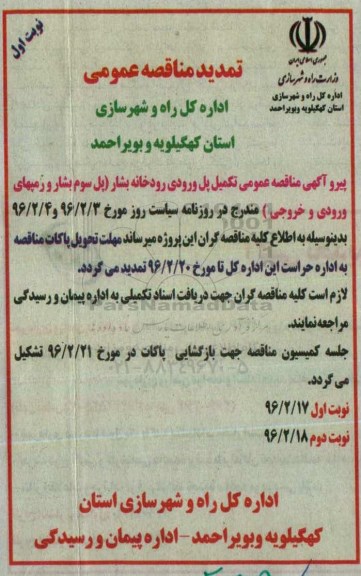 نوبت اول
جمهوری اسلامی ایران
وزارت راه و شهرسازی
اداره کل راه و شهرسازی
استان کهگیلویه وبویراحمد
تمدید مناقصه عمومی
اداره کل راه و شهرسازی
استان کهگیلویه و بویراحمد
پیرو آگهی مناقصه عمومی تکمیل پل ورودی رودخانه بشار (پل سوم بشار و رمپهای
ورودی و خروجی ) مندرج در روزنامه سیاست روز مورخ ۹۶/۲/۳ و ۹۶/۲/۴
بدینوسیله به اطلاع کلیه مناقصه گران این پروژه میرساند مهلت تحویل پاکات مناقصه
به اداره حراست این اداره کل تا مورخ ۹۶/۲/۲۰ تمدید می گردد.
لازم است کلیه مناقصه گران جهت دریافت اسناد تکمیلی به اداره پیمان و رسیدگی
مراجعه نمایند.
ParsNamadData
جلسه کمیسیون مناقصه جهت بازگشایی پاکات در مورخ ۹۶/۲/۲۱ تشکیل
۰۲۱-۸۸۳۴۹۶۷۰-۵
می گردد.
نوبت اول ۹۶/۲/۱۷
نوبت دوم ۹۶/۲/۱۸
اداره کل راه و شهرسازی استان
کهگیلویه وبویراحمد - اداره پیمان و رسیدگی